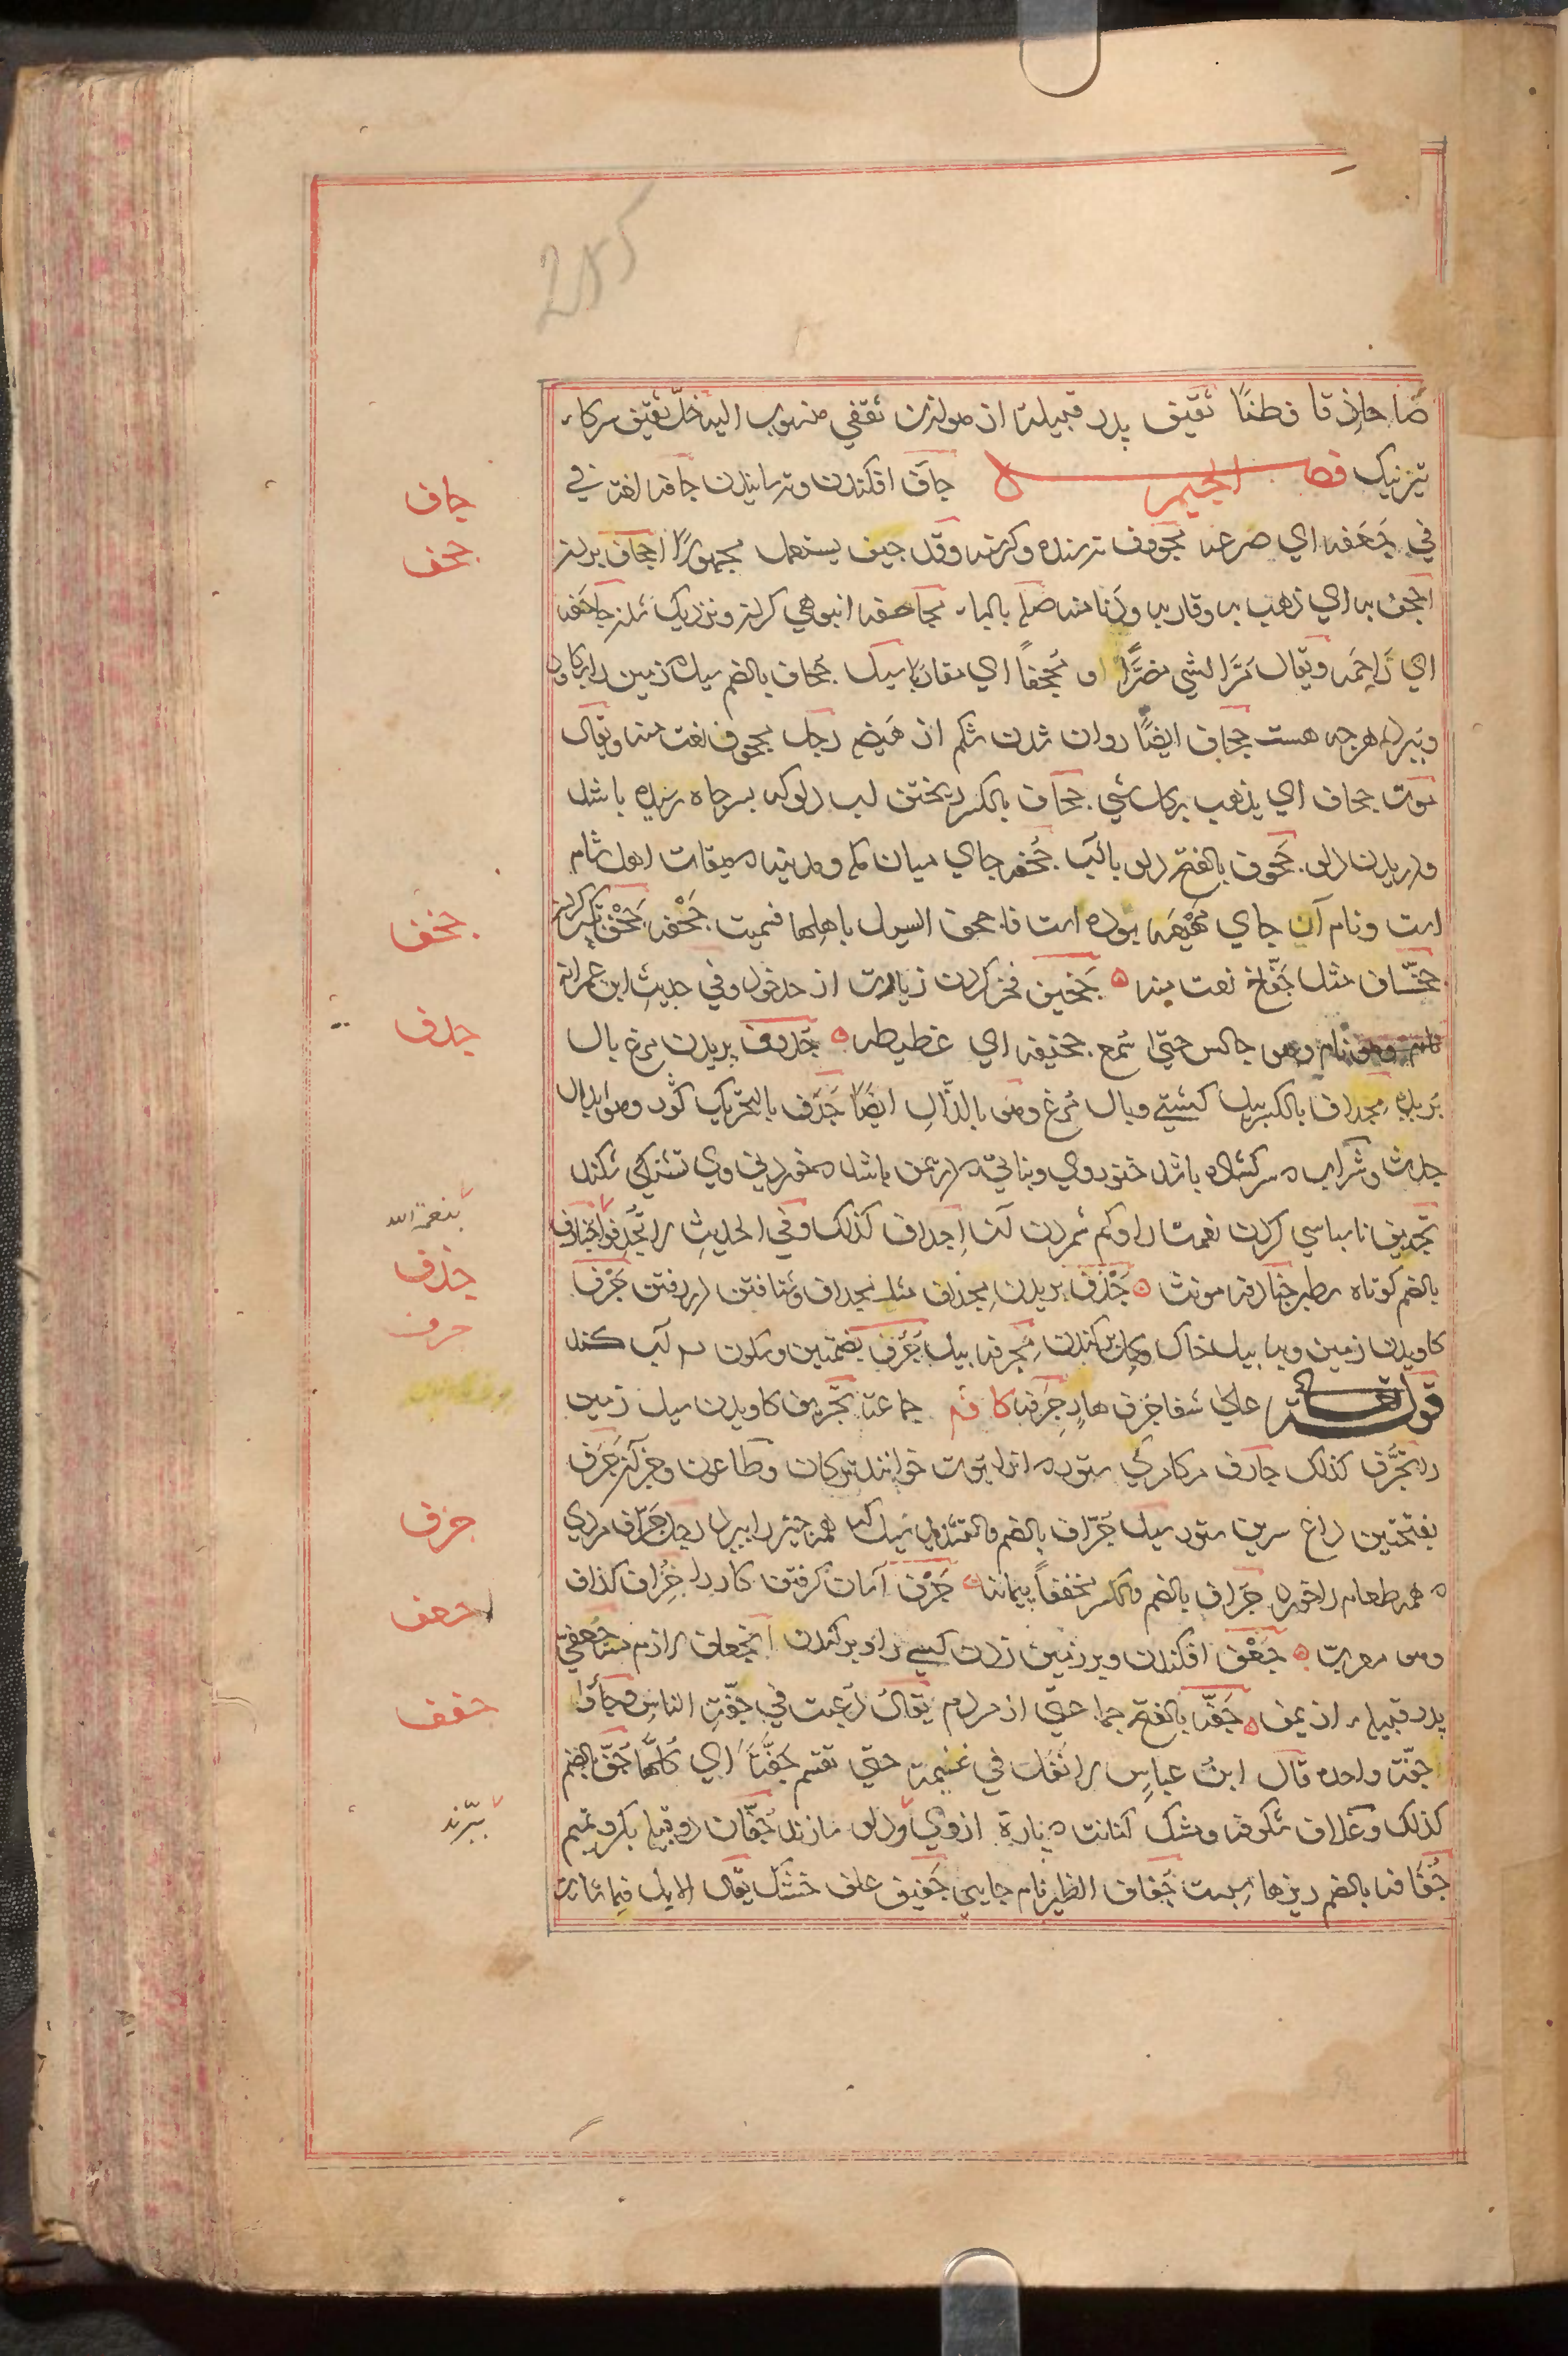 صار حاذقا فطنًا ثقیف پدر قبیله از هوازن ثقفی منسوب الیه خلّ ثقیف سرکاء
تیزنیک فصل الجیم جأف افکندن وترسانیدن جافه لغة فی
فی جعفه ای صرعه مجووف ترسنده وکرسنه وقد جیف یستعمل مجهورًا اجحاف بردن
اجحف به ای ذهب به وقاربه ودنا منه صلح بالباء مجاحفه انبوهی کردن ونزدیک شدن جاحفه
ای زاحمه ویقال مرّ الشی مضرًّا او مجحفًا ای مقاربًا سیل جحاف بالضم سیل که زمین را بکاود
وببرد هرچه هست جحاف ایضًا روان شدن شکم از هیضه رجل مجحوف نعت منه ویقال
موت جحاف ای یذهب بکل شی جحاف بالکسر ریختن لب دلو که بسر چاه رسیده باشد
ودریدن دلو جحوف بالفتح دلو با آب جحفه جای میان مکه ومدینه میقات اهل شام
است ونام آن جای مهیعه بوده است فاجحف السیل باهلها فسمیت جحفه جخف تکبر کردن
جخّاف مثل جفّاخ نعت منه جخیف فخر کردن زیادت از حد خود وفی حدیث ابن عمر انه
نام وهو جالس حتی اسمع جخیفه ای غطیطه جدوف پریدن مرغ بال
بریده مجداف بالکسر بیل کشتی وبال مرغ وهو بالذال ایضًا جدف بالتحریک کور وهو ابدال
جدث وشراب سرکشاده باشد خنوردوی ونباتی در یمن باشد خورانی وی تشنکی نکند
تجدیف ناسپاسی کردن نعمت را وکم شمردن آن اجداف کذلک وفی الحدیث لا تجدفوا جنادف
بالضم کوتاه سطبر جنادفه مونث جذف بریدن مجذاف مثله مجداف وشتافتن در رفتن جرف
کاویدن زمین وبه بیل خاک وکل برکندن مجرفه بیل جرف بضمتین وسکون آب کند
قوله تعالی علی شفا جرف هارٍ جرفه کا فه جماعة تجریف کاویدن سیل زمین
را تجرف کذلک جارف مرکامرکی ستور انرا یموت خوانند ترکان وطاعون وجز آن جرف
بفتحتین داغ سرین ستور سیل جراف بالضم والتشدید سیل که همه چیز را ببرد رجل جراف مردی
همه طعام را خورد جراف بالضم والکسر مخففًا پیمانه جزف آسان کرفتن کار را جزاف کذاف
وهو معرب جعف افکندن وبر زمین زدن کسی را وبرکندن انجعاف لازم منه جعفی
پدر قبیله از یمن جفّه بالفتح جماعتی از مردم یقال دعیت فی جفّة الناس وجاؤا
جفّة واحده قال ابن عباس لا نفل فی غنیمة حتی تقسم جفّةً ای کلّها جف بالضم
کذلک وغلاف شکوفه ومشک کهنه نیمه ازوی ودلو سازند جفّان دو قبیله بکر وتمیم
جفافه بالضم ریزها بست جفاف الطیر نام جایی جفیف علف خشک یقال الابل فیما شاءت
جاف
جحف
جخف
جدف
بنعمة الله
جذف
جرف
جزف
جعف
جفف
ببرند